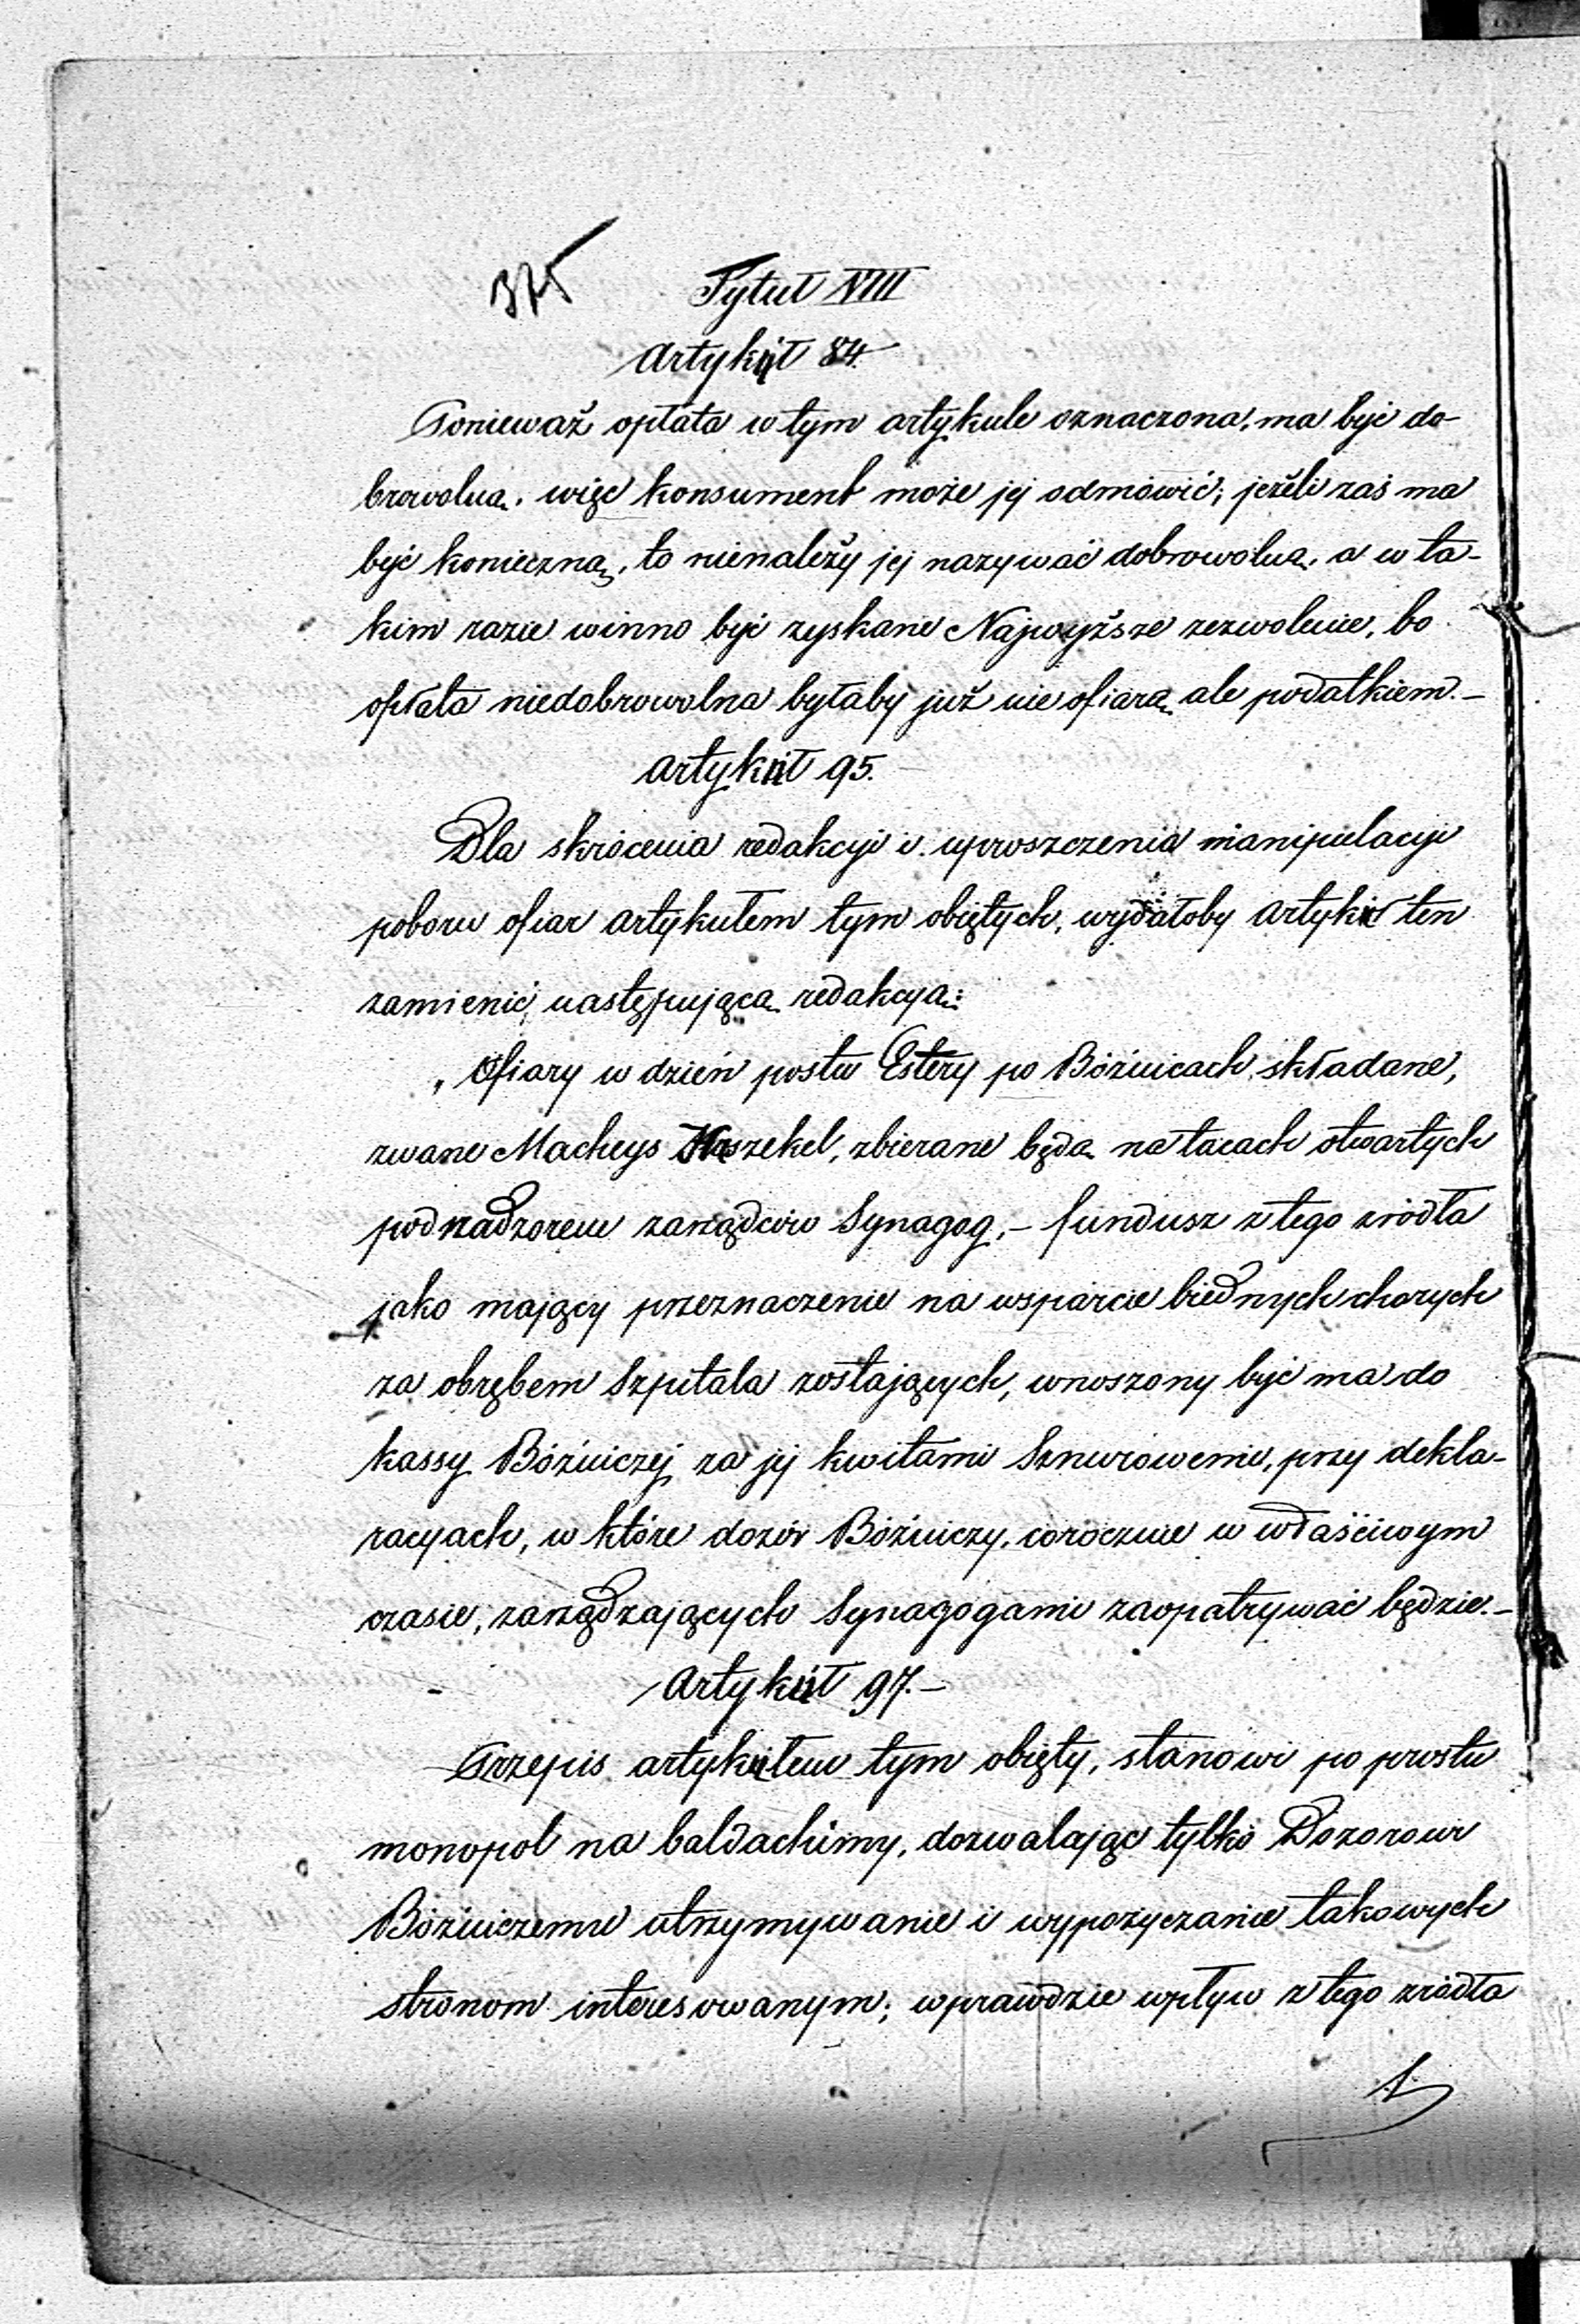 375
Tytuł VIII
Artykuł 84.
Ponieważ opłata w tym artykule oznaczona, ma być do-
browolną, więc konsument może jej odmówić; jeżeli zaś ma
być konieczną, to nienależy jej nazywać dobrowolną, a w ta-
kim razie winno być zyskane Najwyższe zezwolenie, bo
opłata niedobrowolna byłaby już nie ofiarą ale podatkiem.-
Artykuł 95.
Dla skrócenia redakcyi i uproszczenia manipulacyi
poboru ofiar artykułem tym objętych, wydałoby artykuł ten
zamienić następującą redakcyą:
„Ofiary w dzień postu Estery po Bóżnicach składane,
zwane Macheys szekel, zbierane będą na tacach otwartych
pod nadzorem zarządców Synagog,- fundusz z tego źródła
jako mający przeznaczenie na wsparcie biednych chorych
za obrębem Szpitala zostających, wnoszony być ma do
kassy Bóżniczej za jej kwitami Sznurowemi, przy dekla-
racyach, w które dozór Bóżniczy, corocznie w właściwym
czasie, zarządzających Synagogami zaopatrywać będzie.-
Artykuł 97.-
Przepis artykułem tym objęty, stanowi po prostu
monopol na baldachimy, dozwalając tylko Dozorowi
Bóżniczemu utrzymywanie i wypożyczanie takowych
stronom interesowanym; wprawdzie wpływ z tego źródła